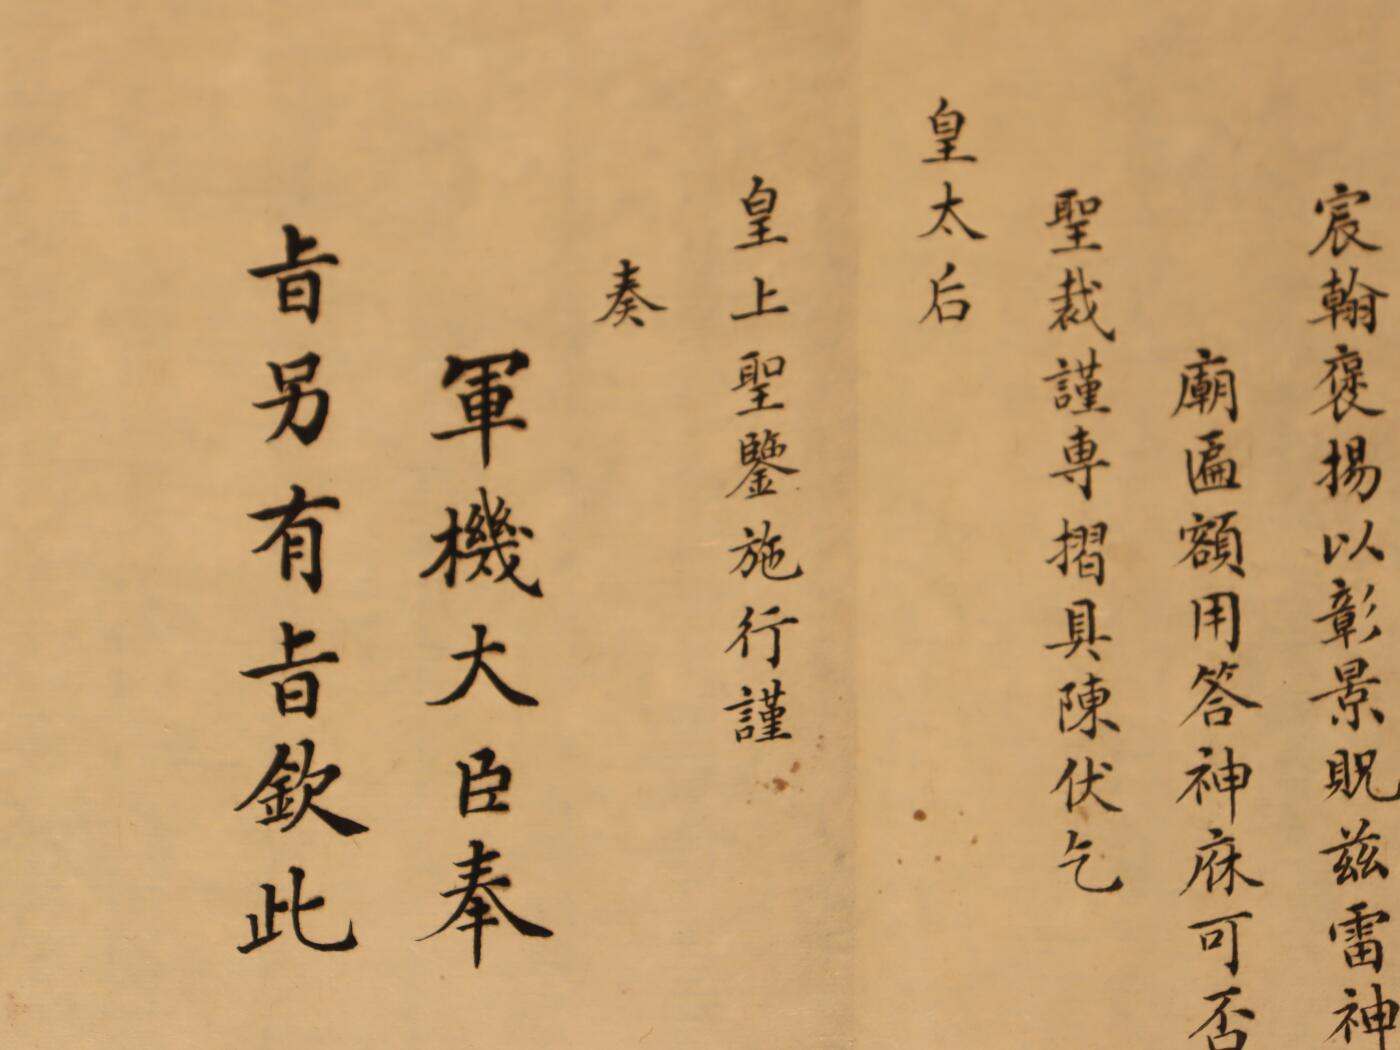 宸翰褒揚以彰景貺兹雷神
廟匾額用答神庥可否
聖裁謹專摺具陳伏乞
皇太后
皇上聖鑒施行謹
奏
軍機大臣奉
旨另有旨欽此